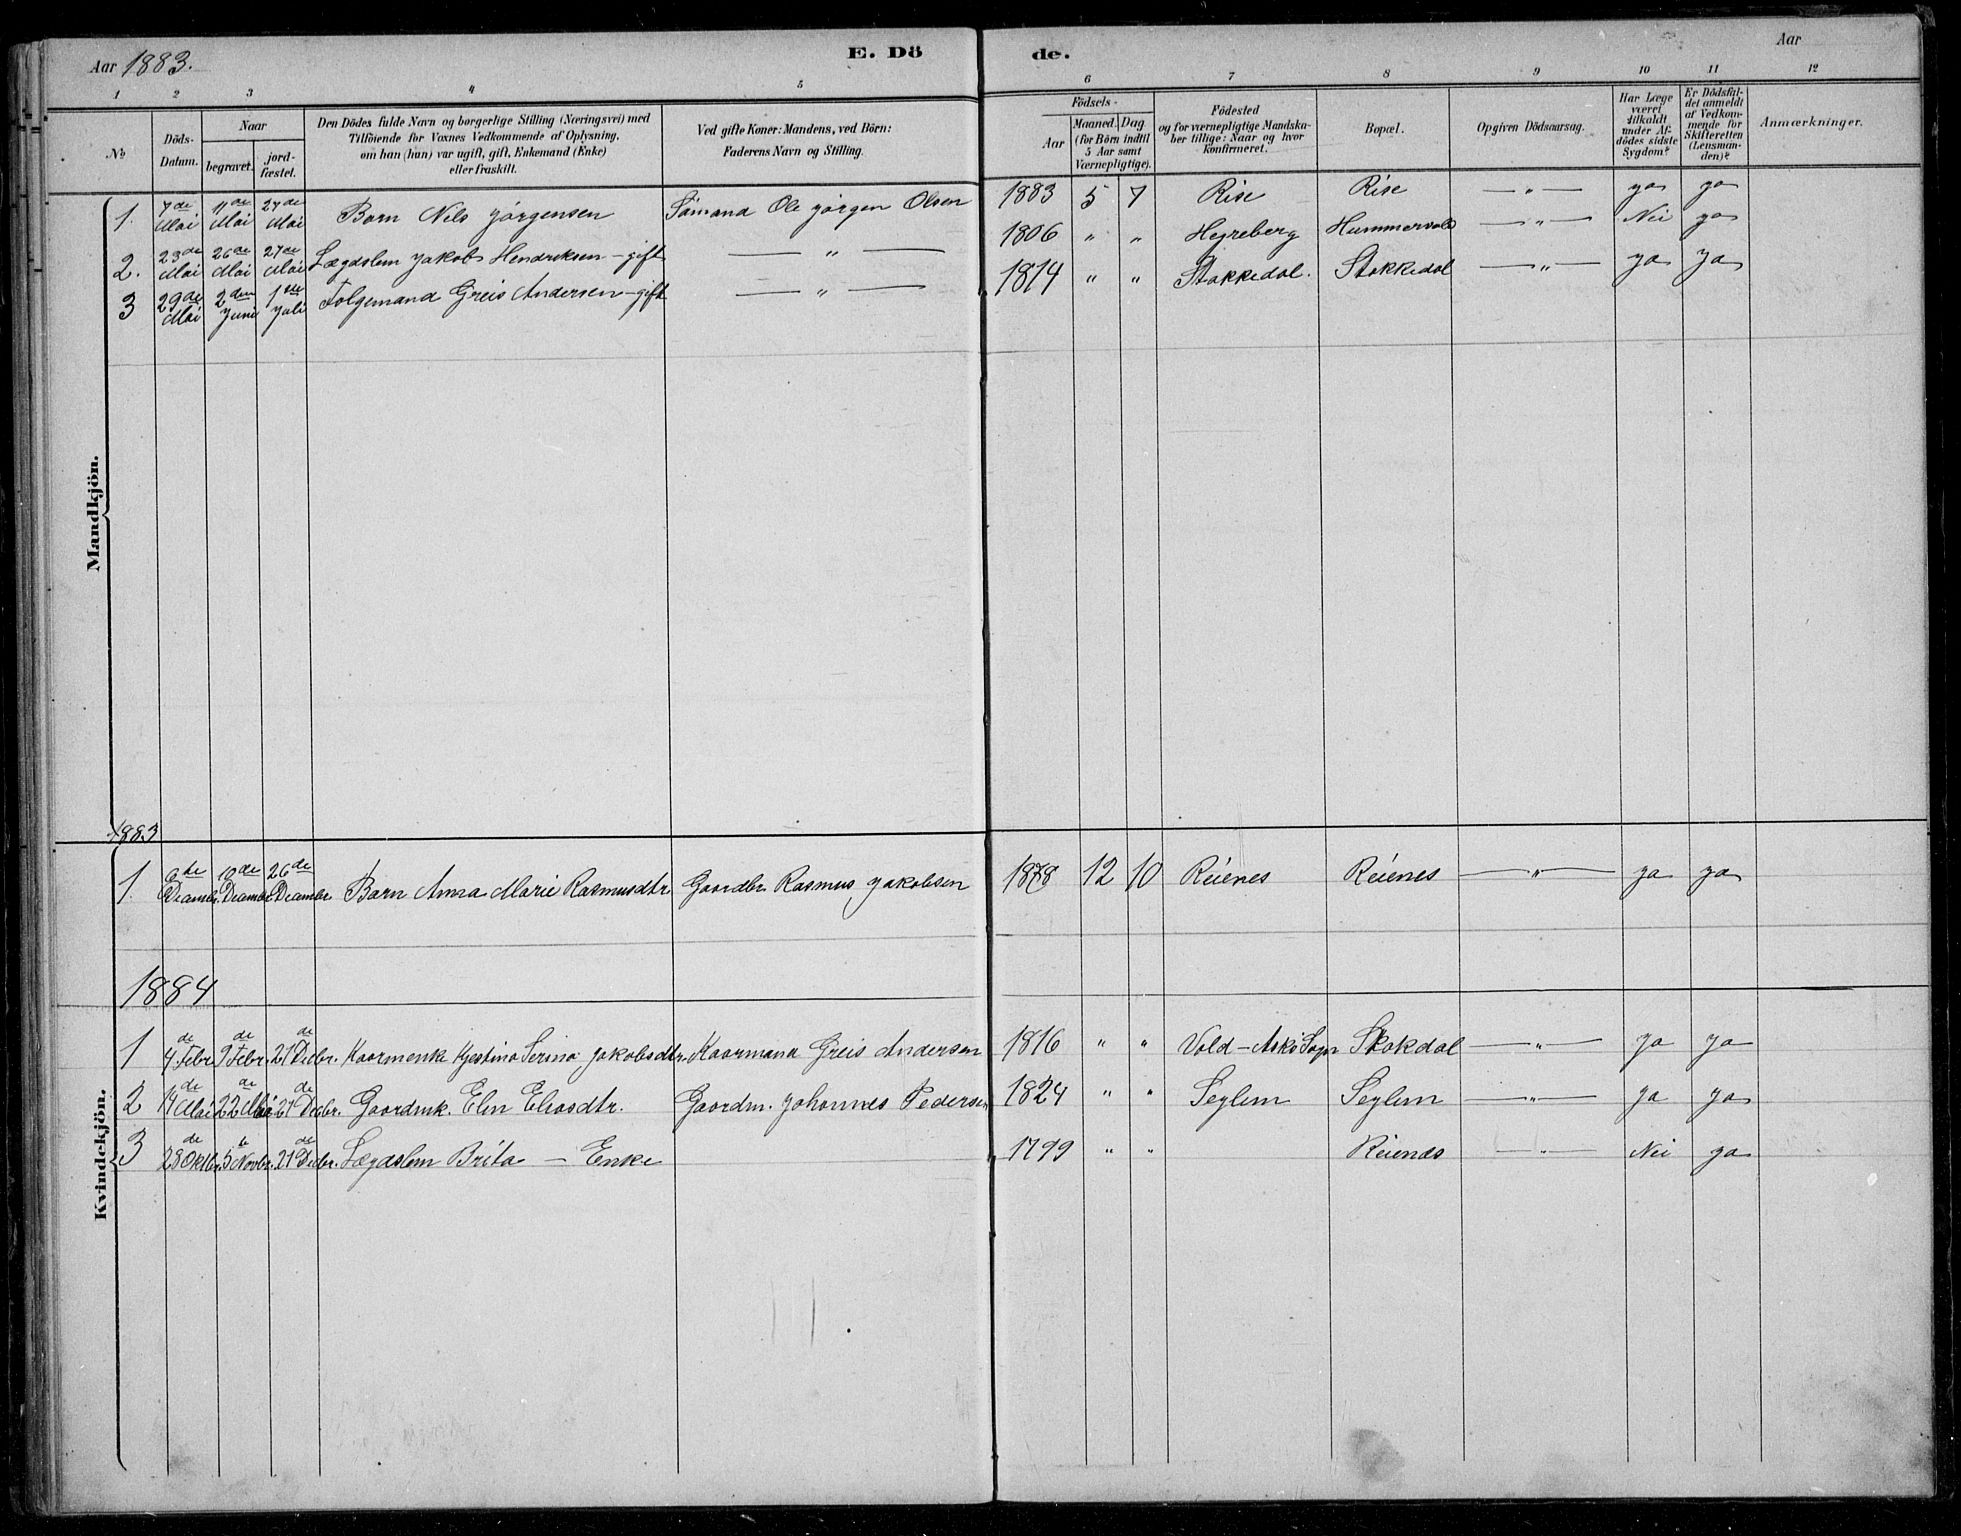 Aar 1883.
E. Dö
de.
Aar
1 2 3 4 5 6 7 8 9 10 11 12
№
Döds-Datum.
Naar
begravet.
jord-fæstet.
Den Dödes fulde Navn og borgerlige Stilling (Næringsvei) med
Tilföiende for Voxnes Vedkommende af Oplysning,
om han (hun) var ugift, gift, Enkemand (Enke)
eller fraskilt.
Ved gifte Koner: Mandens, ved Börn:
Faderens Navn og Stilling.
Födsels-
Aar
Maaned. Dag
(for Börn indtil
5 Aar samt
Værnepligtige).
Födested
og for værnepligtige Mandska-
ber tillige: Naar og hvor
Konfirmeret.
Bopæl.
Opgiven Dödsaarsag.
Har Læge
været
tilkaldt
under Af-
dödes sidste
Sygdom?
Er Dödsfal-
det anmeldt
af Vedkom-
mende for
Skifteretten
(Lensman-
den)?
Anmærkninger.
Mandkjön.
1. 7de Mai 11de Mai 27de Mai Barn Nels Jörgensen Sömand Ole Jörgen Olsen 1883 5 7 Rise Rise —„— ja ja
2. 23de Mai 26de Mai 27de Mai Lægdslem Jakob Hendriksen - gift —„— 1806 „ „ Hejreberg Hummervold —„— Nei ja
3 29de Mai 2den Juni 1ste Juli Folgemand Greis Andersen - gift —„— 1814 „ „ Stakkedal. Stokkedal —„— ja ja
1883
1. Decembr. 10de Decembr. 26de Decembr. Barn Anna Marie Rasmusdtr. Gaardbr. Rasmus Jakobsen 1878 12 10 Reienes Reienes —„— ja ja
1884
Kvindekjön.
1 4de Febr. 9de Febr. 21de Decbr. Kaarmenk Kjestina Serina Jakobsdtr. Kaarmand Greis Andersen 1816 „ „ Vold - Askö Sogn Stokdal —„— ja ja
2 14de Mai 22de Mai 21de Decbr. Gaardmk. Elen Eliasdtr. Gaardm. Johannes Pedersen 1824 „ „ Seglem Seglem —„— ja ja
3 28de Oktbr. 5te Novbr. 21de Decbr. Lægdslem Brita - Enke 1799 „ „ Reienes —„— Nei ja